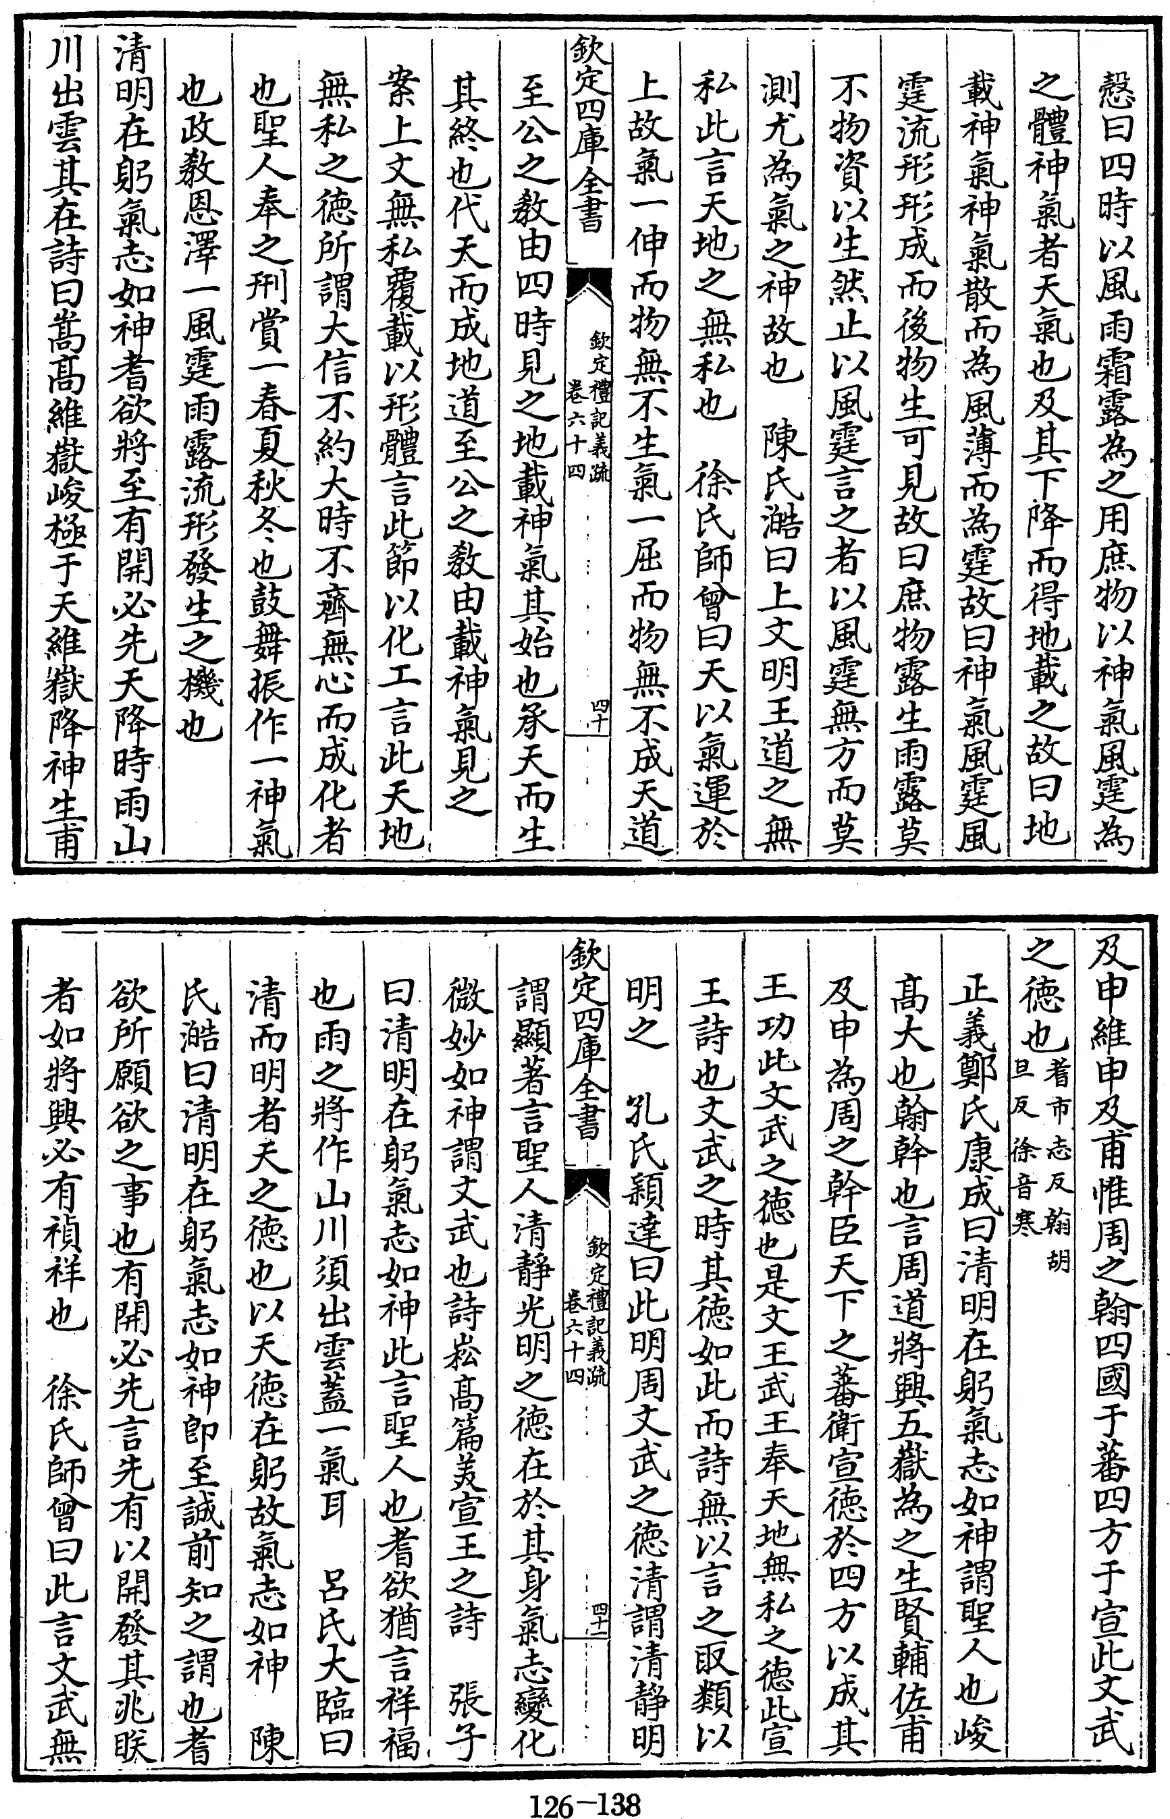 慤曰四時以風雨霜露為之用庶物以神氣風霆為
之體神氣者天氣也及其下降而得地載之故曰地
載神氣神氣散而為風薄而為霆故曰神氣風霆風
霆流形形成而後物生可見故曰庶物露生雨露莫
不物資以生然止以風霆言之者以風霆無方而莫
測尤為氣之神故也　陳氏澔曰上文明王道之無
私此言天地之無私也　徐氏師曾曰天以氣運於
上故氣一伸而物無不生氣一屈而物無不成天道
欽定四庫全書　欽定禮記義疏　卷六十四　四十
至公之教由四時見之地載神氣其始也承天而生
其終也代天而成地道至公之教由載神氣見之
案上文無私覆載以形體言此節以化工言此天地
無私之德所謂大信不約大時不齊無心而成化者
也聖人奉之刑賞一春夏秋冬也鼓舞振作一神氣
也政教恩澤一風霆雨露流形發生之機也
清明在躬氣志如神耆欲將至有開必先天降時雨山
川出雲其在詩曰嵩高維嶽峻極于天維嶽降神生甫
及申維申及甫惟周之翰四國于蕃四方于宣此文武
之德也耆市志反翰胡旦反徐音寒
正義鄭氏康成曰清明在躬氣志如神謂聖人也峻
高大也翰幹也言周道將興五嶽為之生賢輔佐甫
及申為周之幹臣天下之蕃衛宣德於四方以成其
王功此文武之德也是文王武王奉天地無私之德此宣
王詩也文武之時其德如此而詩無以言之取類以
明之　孔氏穎達曰此明周文武之德清謂清靜明
欽定四庫全書　欽定禮記義疏　卷六十四　四十一
謂顯著言聖人清靜光明之德在於其身氣志變化
微妙如神謂文武也詩崧高篇美宣王之詩　張子
曰清明在躬氣志如神此言聖人也耆欲猶言祥福
也雨之將作山川須出雲蓋一氣耳　呂氏大臨曰
清而明者天之德也以天德在躬故氣志如神　陳
氏澔曰清明在躬氣志如神即至誠前知之謂也耆
欲所願欲之事也有開必先言先有以開發其兆眹
者如將興必有禎祥也　徐氏師曾曰此言文武無
126-138